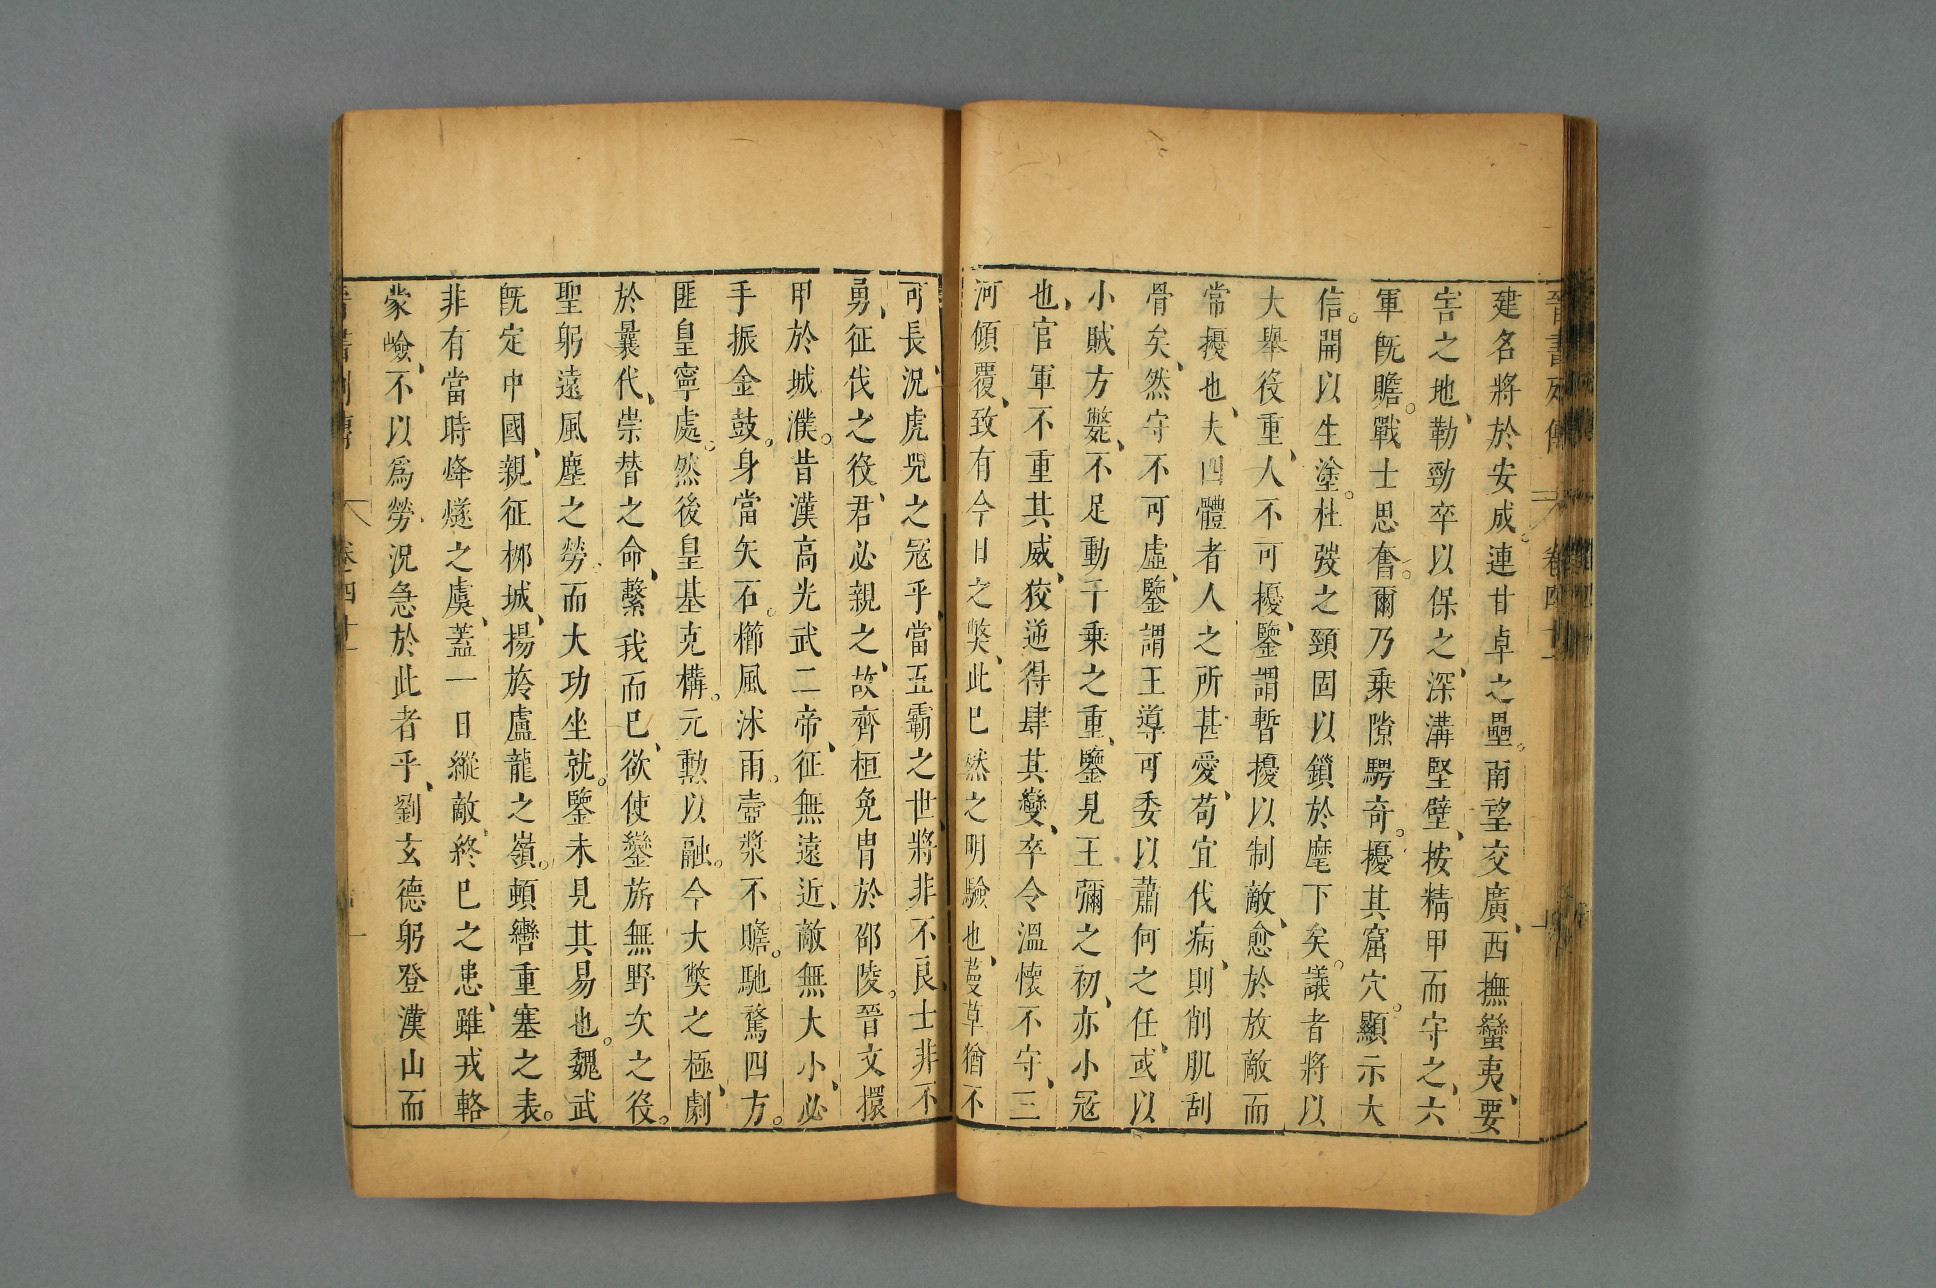 晉書列傳 卷四十一
建名將於安成、連甘卓之壘。南望交廣、西撫蠻夷、要
害之地、勒勁卒以保之、深溝堅壁、按精甲而守之、六
軍旣贍。戰士思奮。爾乃乗隙騁奇。擾其窟穴。顯示大
信。開以生塗。杜弢之頸固以鎖於麾下矣。議者將以
大舉役重、人不可擾、鑒謂暫擾以制敵、愈於放敵而
常擾也、夫四體者人之所甚愛、苟宜伐病、則削肌刮
骨矣、然守不可虛、鑒謂王導可委以蕭何之任、或以
小賊方斃、不足動千乗之重、鑒見王彌之初、亦小冦
也、官軍不重其威、狡逆得肆其變、卒令溫懷不守、三
河傾覆、致有今日之獘、此巳然之明驗也、蔓草猶不
可長、況虎兕之冦乎、當五霸之世、將非不良、士非不
勇、征伐之役、君必親之、故齊桓免胄於邵陵。晉文擐
甲於城濮。昔漢高光武二帝、征無遠近、敵無大小、必
手振金鼓。身當矢石。櫛風沭雨。壺漿不贍。馳騖四方。
匪皇寧處。然後皇基克構。元勳以融。今大獘之極、劇
於曩代、崇替之命、繫我而巳、欲使鑾旂無野次之役。
聖躬遠風塵之勞而大功坐就。鑒未見其易也。魏武
旣定中國、親征栁城、揚旍盧龍之嶺。頓轡重塞之表。
非有當時烽燧之虞、蓋一日縱敵、終巳之患、雖戎輅
蒙嶮、不以爲勞、況急於此者乎、劉玄德躬登漢山而
晉書列傳 卷四十一